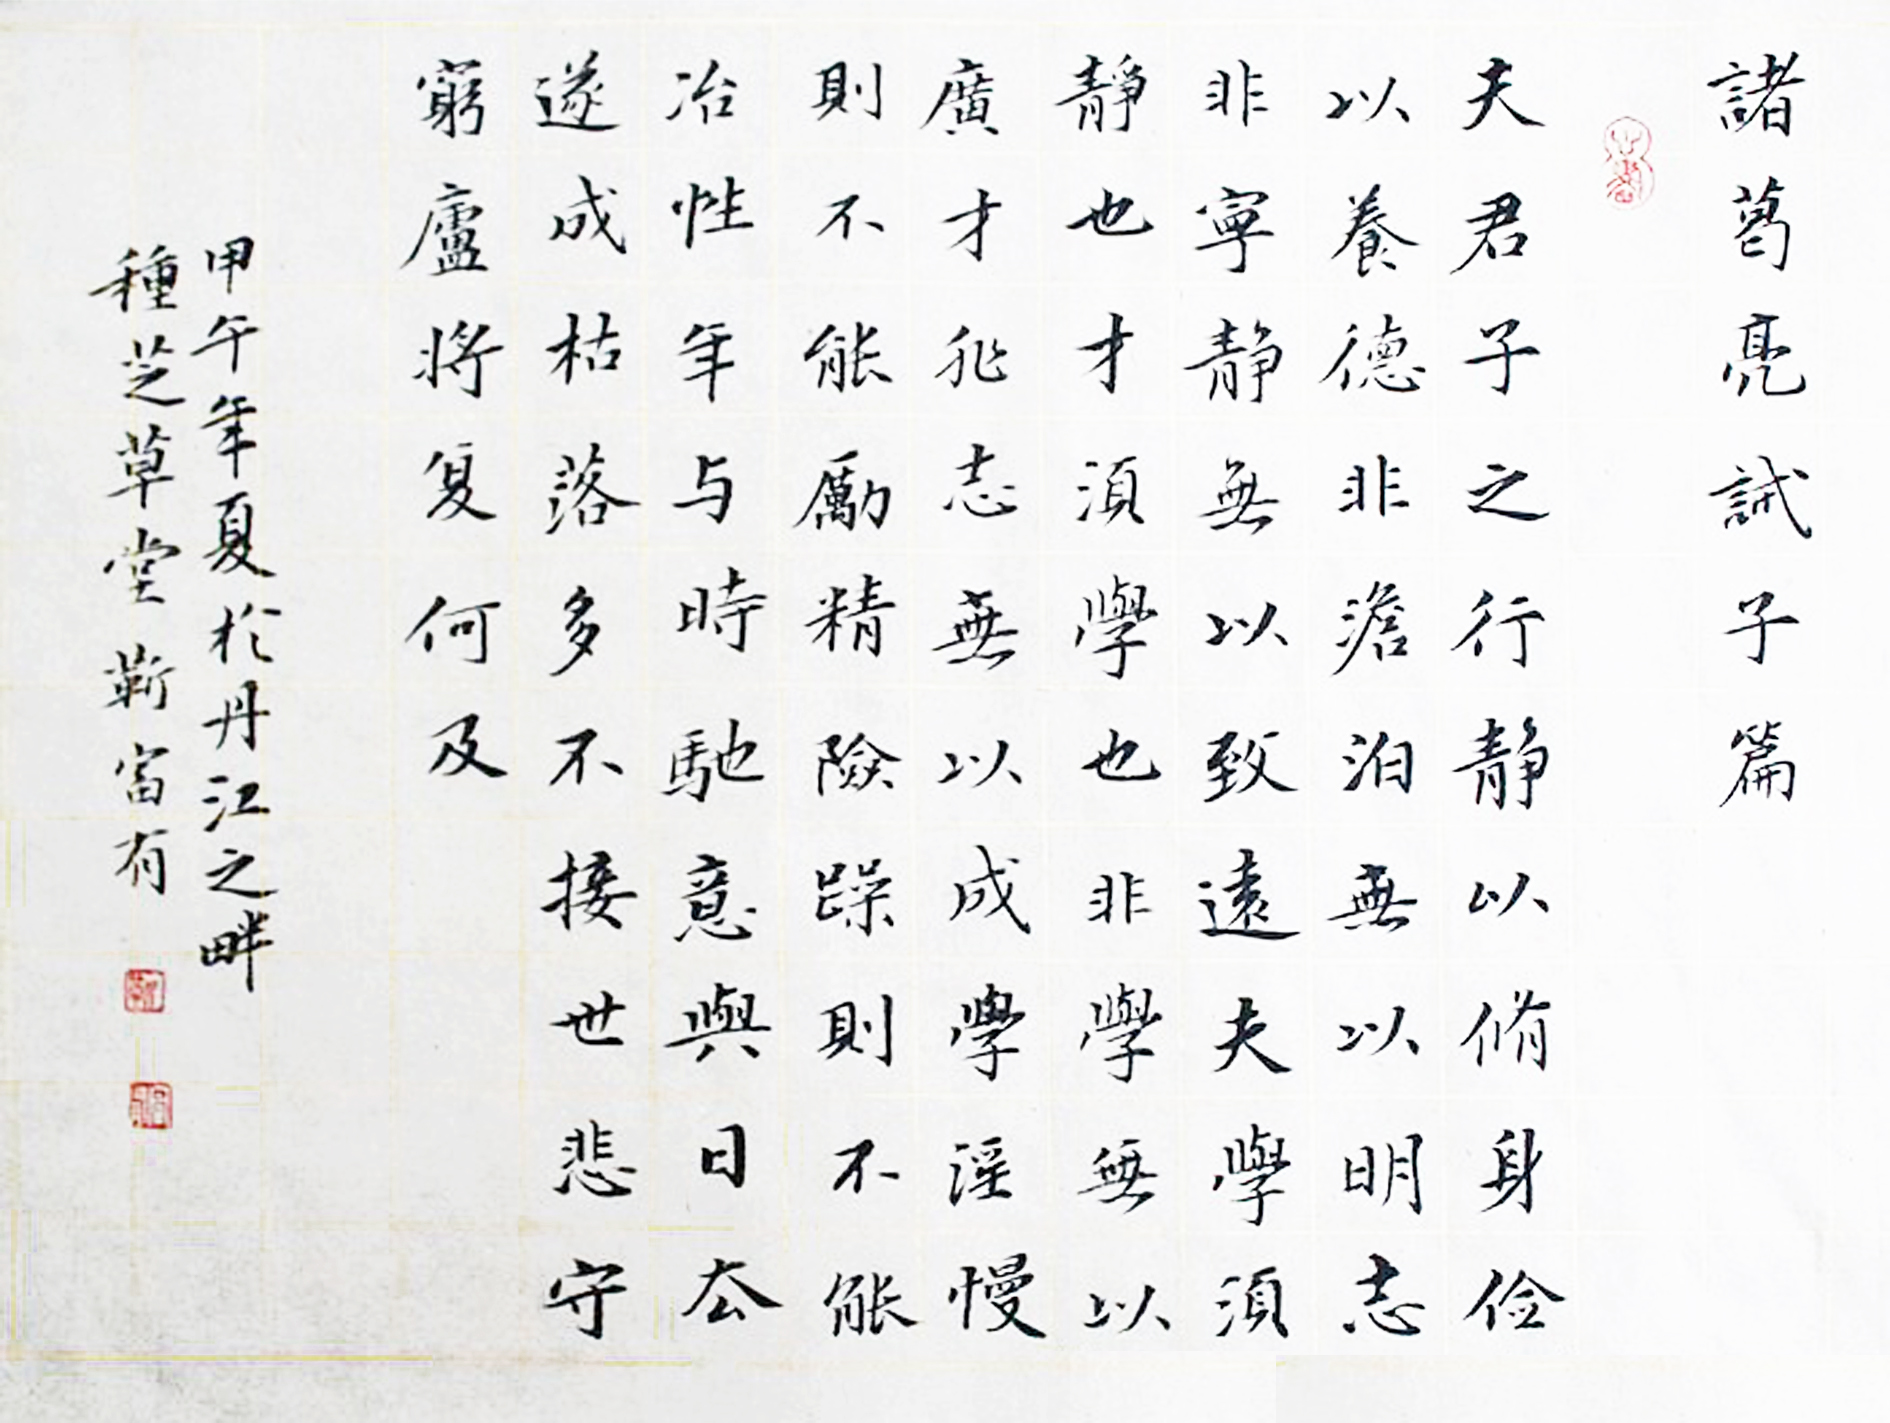 諸葛亮誡子篇
夫君子之行静以脩身儉
以養德非澹泊無以明志
非寧静無以致遠夫學須
静也才須學也非學無以
廣才非志無以成學淫慢
則不能勵精險躁則不能
冶性年与時馳意與日去
遂成枯落多不接世悲守
窮廬將复何及
甲午年夏於丹江之畔
種芝草堂靳富有